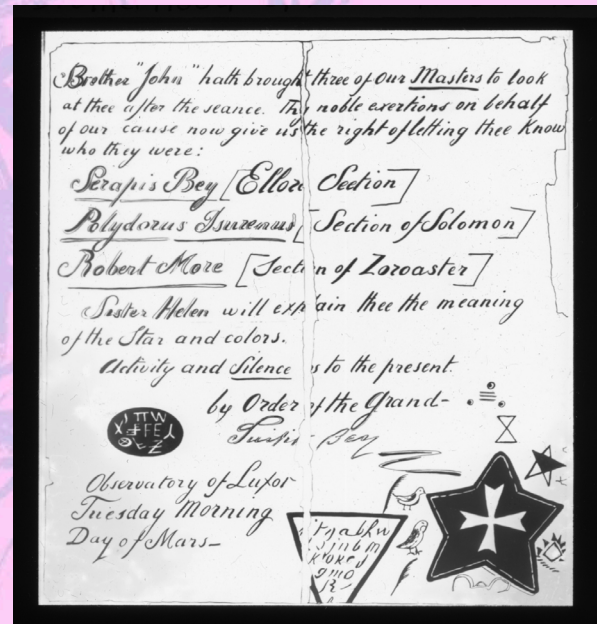 Brother "John" hath brought three of our Masters to look
at thee after the seance. Thy noble exertions on behalf
of our cause now give us the right of letting thee know
who they were:
Serapis Bey [Ellora Section]
Polydorus Isurenus [Section of Solomon]
Robert More [Section of Zoroaster]
Sister Helen will explain thee the meaning
of the Star and colors.
Activity and Silence as to the present.
by Order of the Grand-
Bey
Observatory of Luxor
Tuesday Morning
Day of Mars-